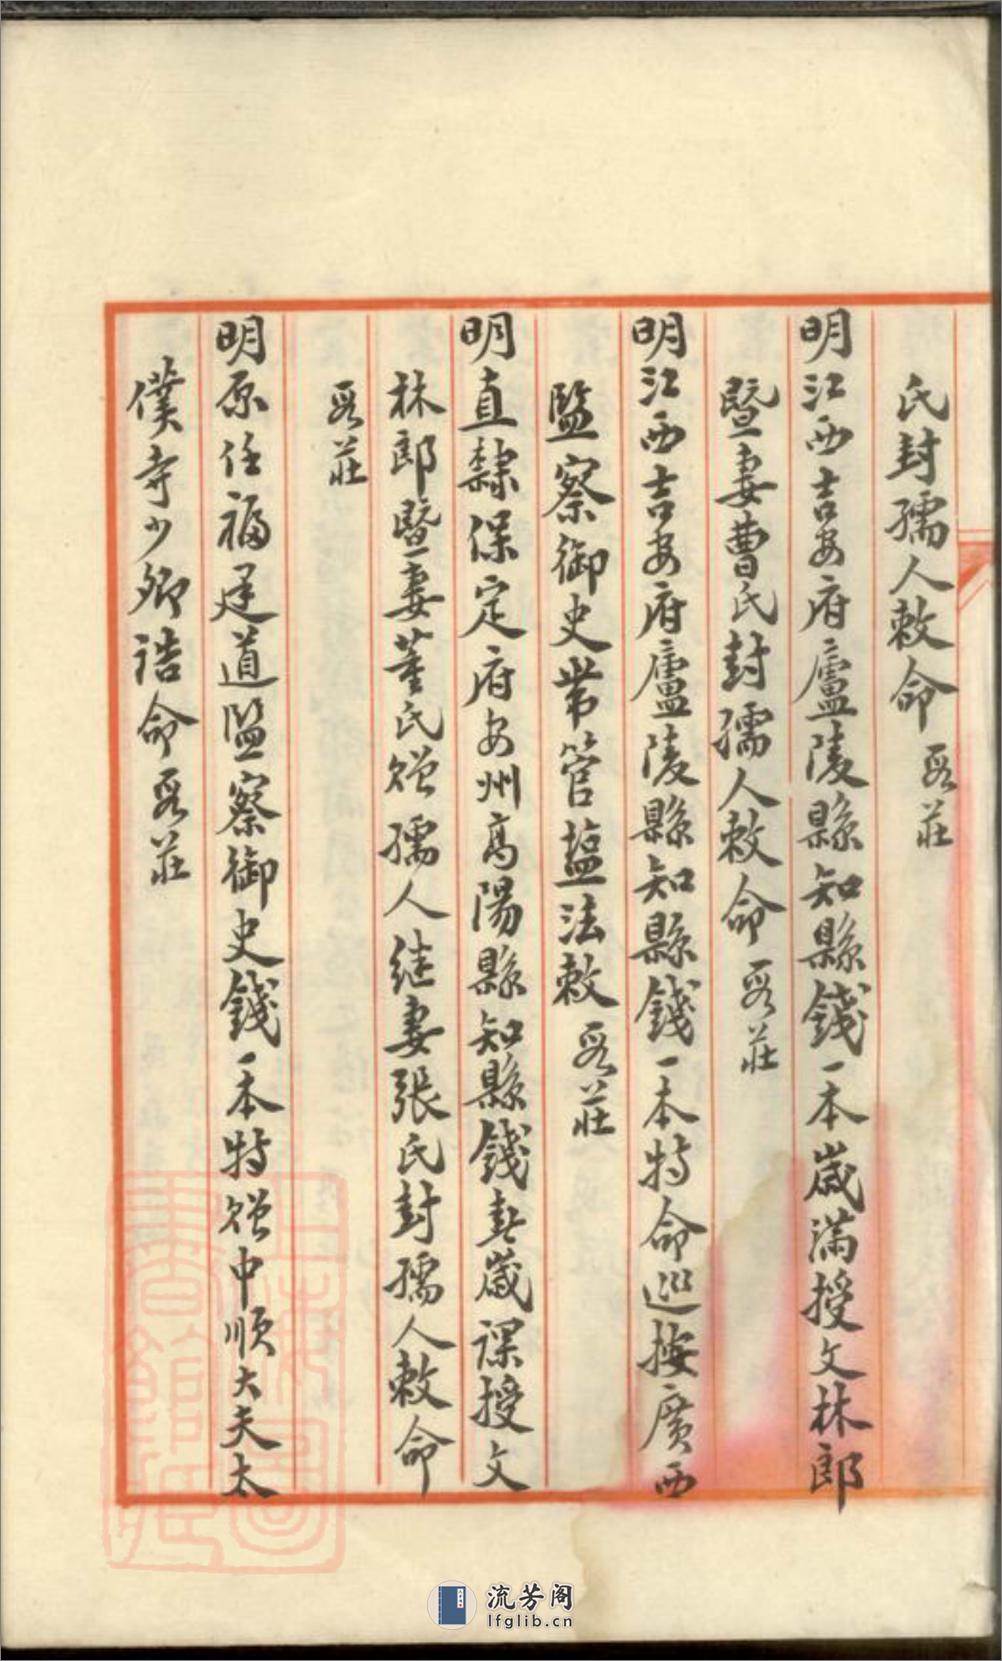 氏封孺人敕命 莊
明江西吉安府廬陵縣知縣錢一本歲滿授文林郎
暨妻曹氏封孺人敕命 莊
明江西吉安府廬陵縣知縣錢一本特命巡按廣西
監察御史帶管鹽法敕 莊
明直隸保定府安州高陽縣知縣錢春歲課授文
林郎暨妻董氏贈孺人继妻張氏封孺人敕命
莊
明原任福建道監察御史錢一本特贈中順大夫太
僕寺少卿誥命 莊
上海圖書館藏
流芳阁
lfglib.cn